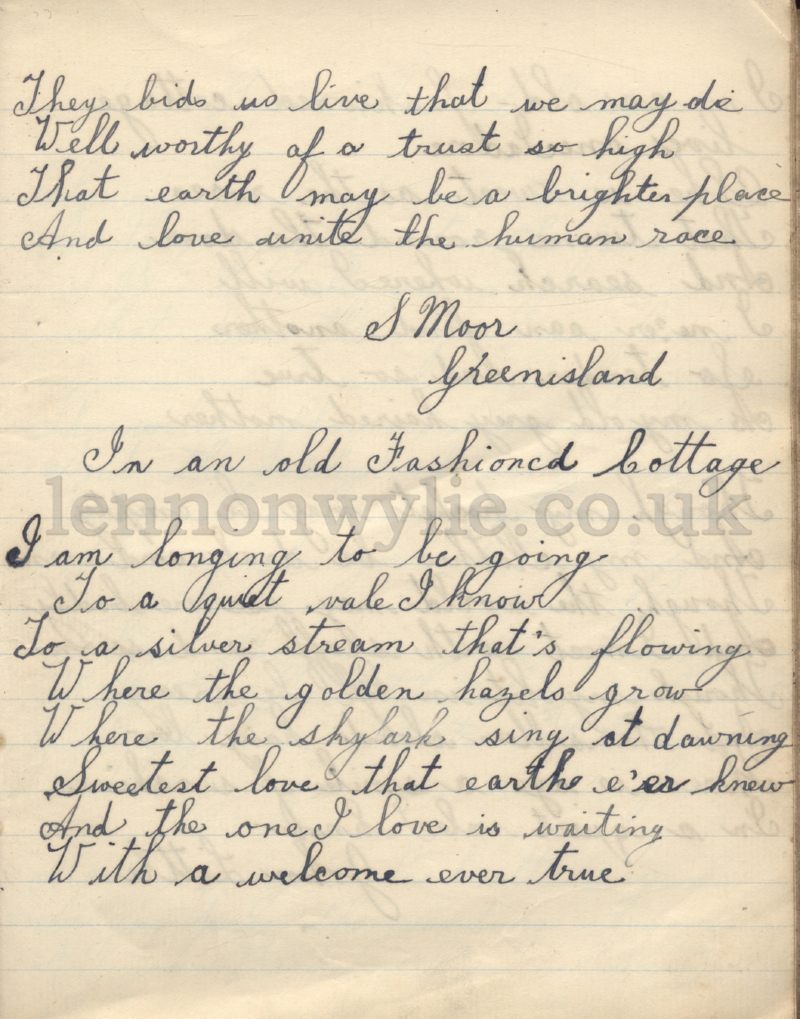 They bids us live that we may die
Well worthy of a trust so high
That earth may be a brighter place
And love unite the human race
S Moor
Greenisland
In an old Fashioned Cottage
lennonwylie.co.uk
I am longing to be going
To a quiet vale I know
To a silver stream that's flowing
Where the golden hazels grow
Where the skylark sing at dawning
Sweetest love that earth e'er knew
And the one I love is waiting
With a welcome ever true